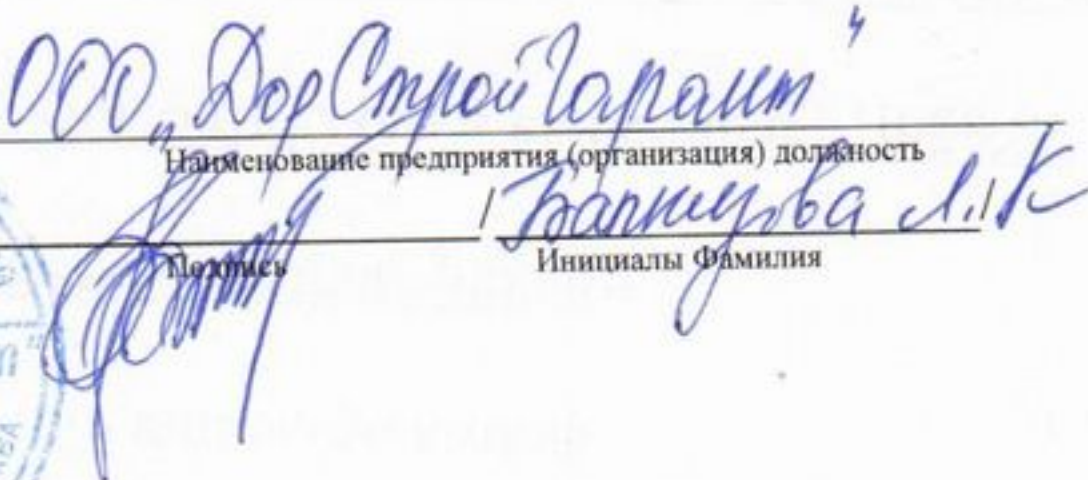 ООО „ДорСтройГарант"
Наименование предприятия (организация) должность
/ Л. К /
Подпись Инициалы Фамилия